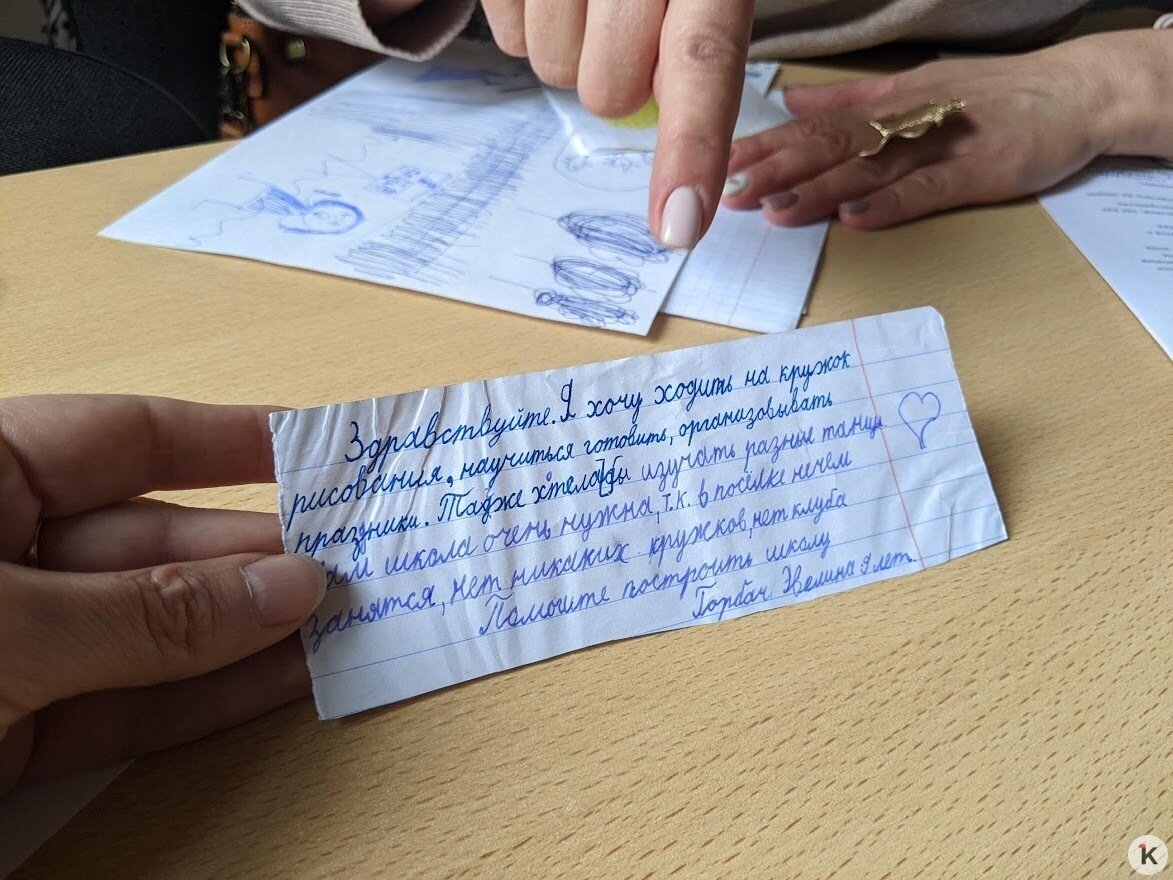 Здравствуйте. Я хочу ходить на кружок
рисования, научиться готовить, организовывать
праздники. Также хтела бы изучать разные танцы.
Нам школа очень нужна, т.к. в посёлке нечем
занятся, нет никаких кружков, нет клуба
Помоите построить школу
Горбач Эвелина 9 лет.
K